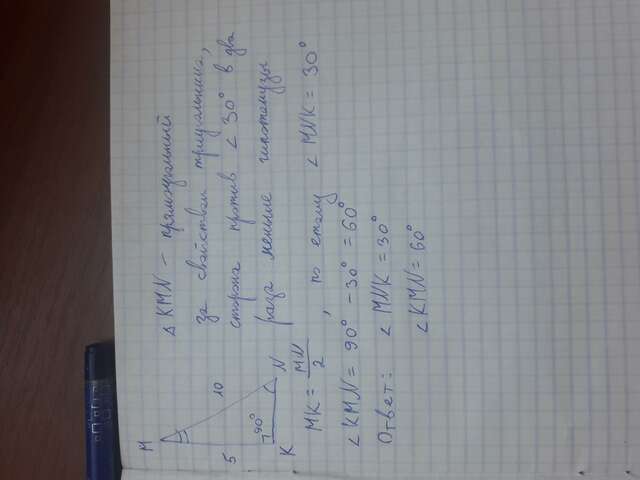 M
10
5
90°
K
N
Δ KMN – прямоугольный
за свойством триугольника,
сторона против < 30° в два
раза меньше гипотенузы
MK = MN/2 , по етому < MNK = 30°
< KMN = 90° - 30° = 60°
Ответ: < MNK = 30°
< KMN = 60°